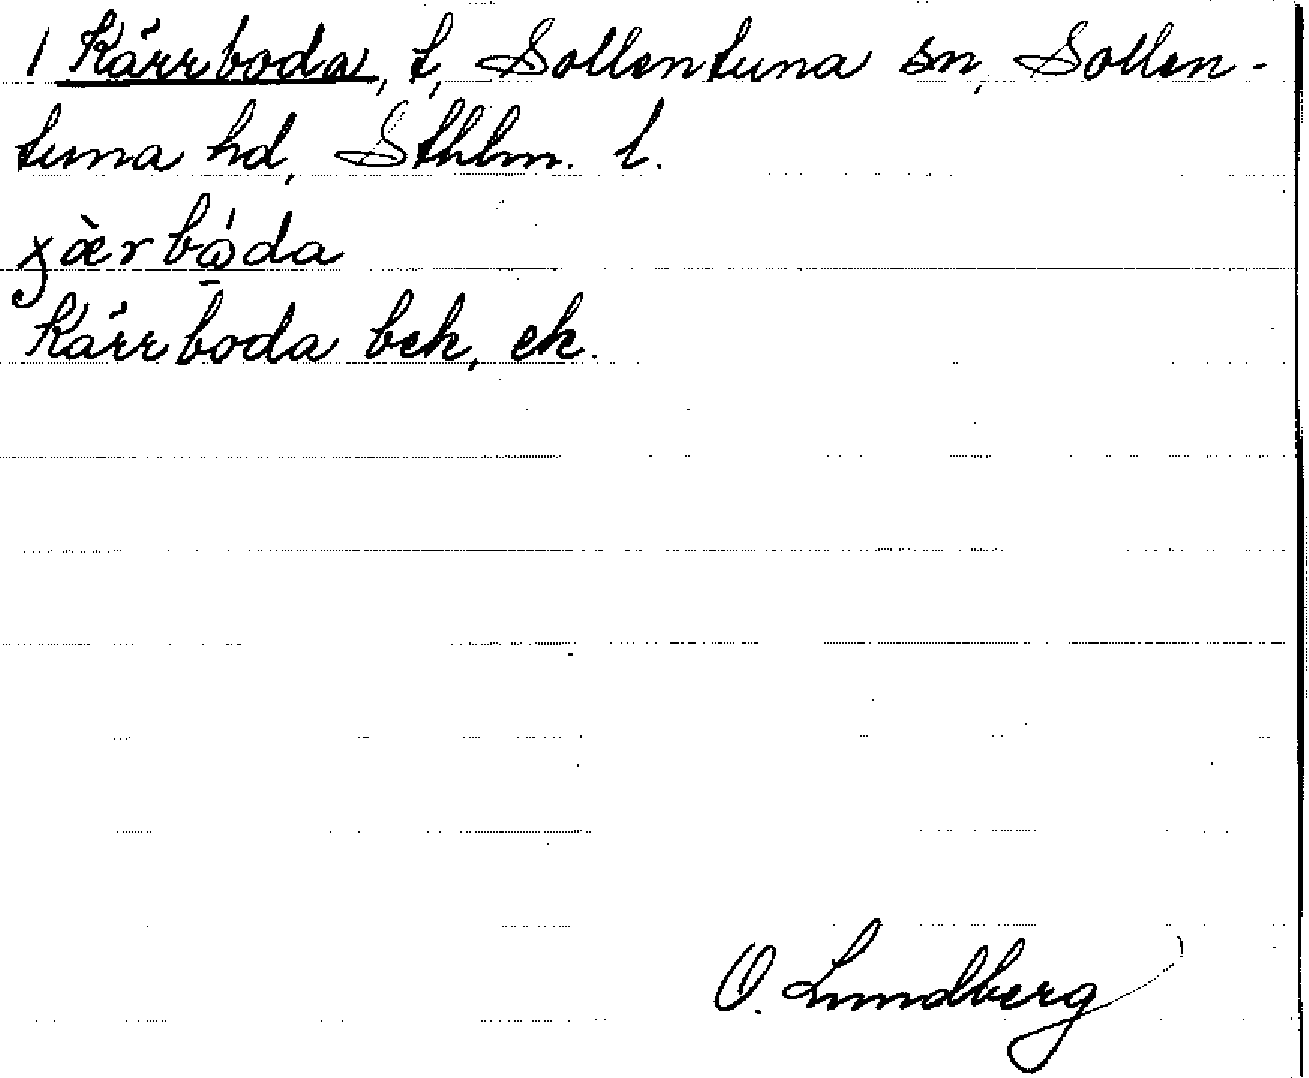 1 Kärrboda, t, Sollentuna sn, Sollen-
tuna hd, Sthlm. l.
Kärrboda bek, ek.
O. Lundberg